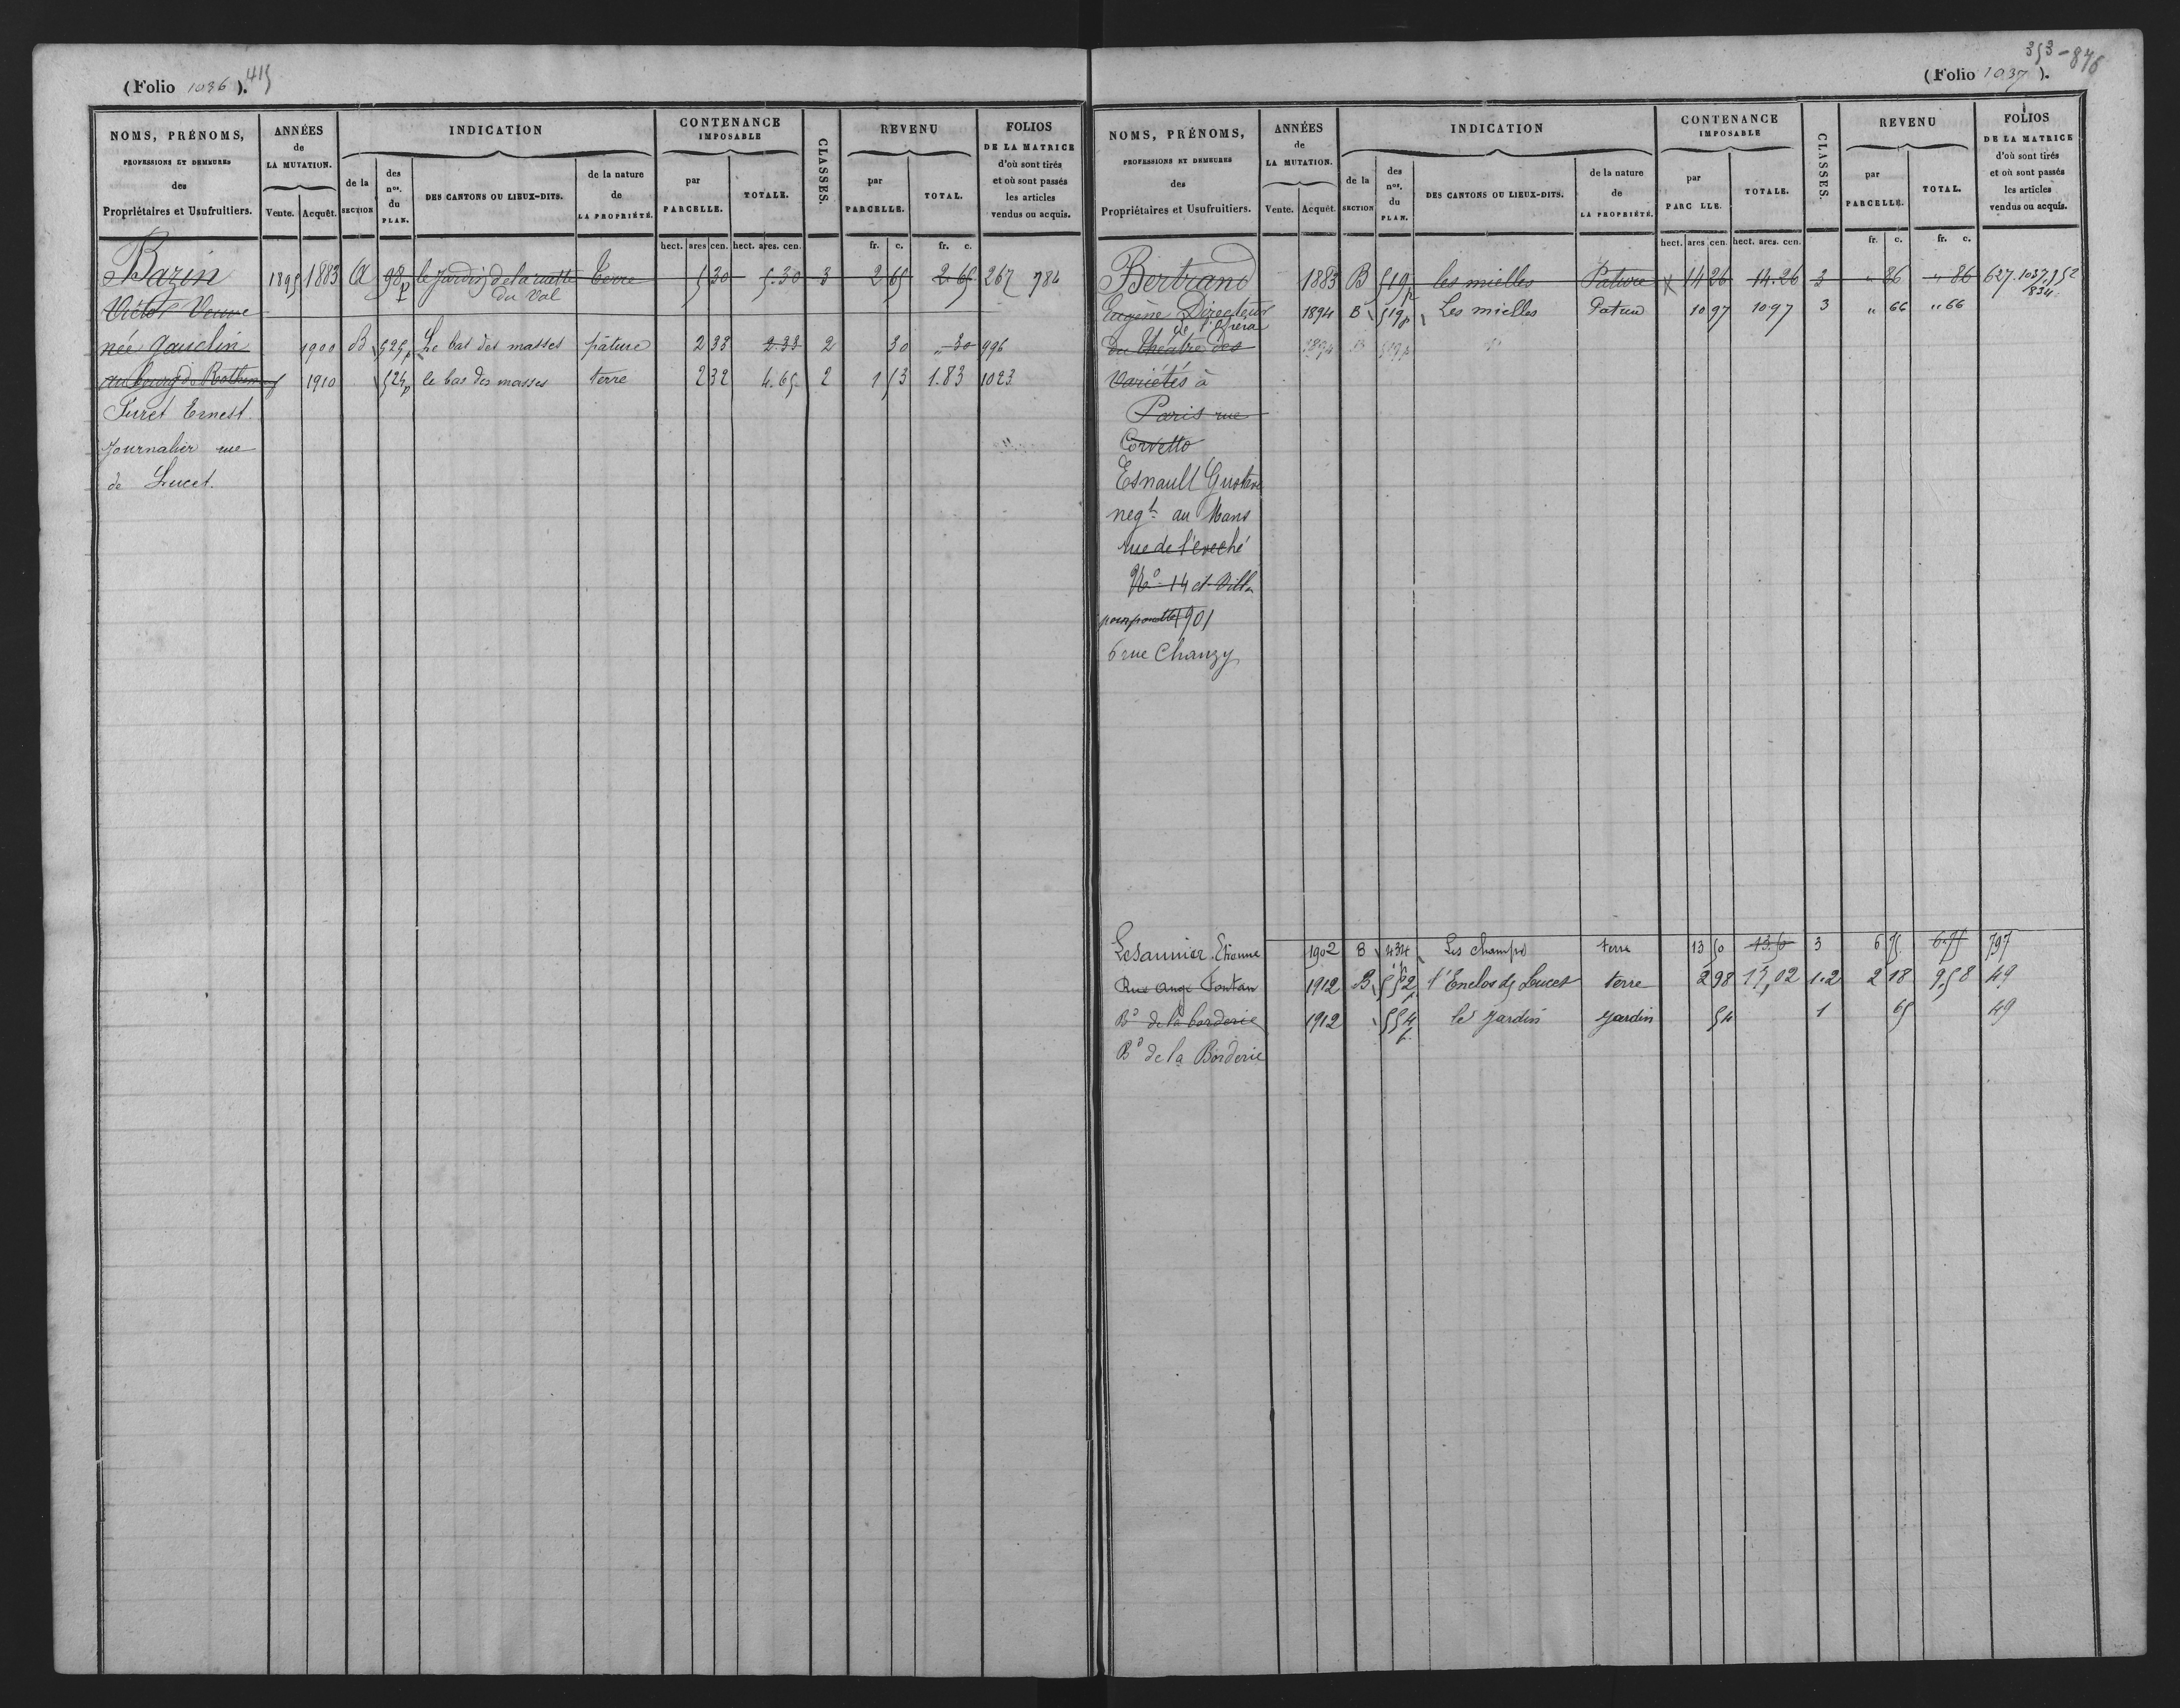 (Folio 1036). 415
NOMS, PRÉNOMS,
PROFESSIONS ET DEMEURES
des
Propriétaires et Usufruitiers.
ANNÉES
de
LA MUTATION.
Vente. Acquêt.
INDICATION
de la
SECTION
des
nos.
du
PLAN.
DES CANTONS OU LIEUX-DITS.
de la nature
de
LA PROPRIÉTÉ.
CONTENANCE
IMPOSABLE
par
PARCELLE.
TOTALE.
CLASSES.
REVENU
par
PARCELLE.
TOTAL.
FOLIOS
DE LA MATRICE
d'où sont tirés
et où sont passés
les articles
vendus ou acquis.
hect. ares cen. hect. ares. cen. fr. c. fr. c.
Bazin 1895 1883 A 98p le Jardin de la ruette Terre 5 30 5.30 3 2 65 2.65 267 784
du Val
Victor Veuve
née Gauclin 1900 B 525p Le bas des masses pâture 2 33 2.33 2 30 " 30 996
au bourg de 1910 524p le bas des masses terre 2 32 4.65 2 1 53 1.83 1023
Furet Ernest
Journalier rue
de Lucet.
353-876
(Folio 1037).
NOMS, PRÉNOMS,
PROFESSIONS ET DEMEURES
des
Propriétaires et Usufruitiers.
ANNÉES
de
LA MUTATION.
Vente. Acquêt.
INDICATION
de la
SECTION
des
nos.
du
PLAN.
DES CANTONS OU LIEUX-DITS.
de la nature
de
LA PROPRIÉTÉ.
CONTENANCE
IMPOSABLE
par
PARC LLE.
TOTALE.
CLASSES.
REVENU
par
PARCELLE.
TOTAL.
FOLIOS
DE LA MATRICE
d'où sont tirés
et où sont passés
les articles
vendus ou acquis.
hect. ares cen. hect. ares. cen. fr. c. fr. c.
Bertrand 1883 B 519p les mielles Pature 14 26 14.26 3 " 86 " 86 627.1037.952
834
Eugène Directeur 1894 B 519p Les mielles Pature 10 97 1097 3 " 66 " 66
de l'opéra
du théatre des 1894 B 519p
Variétés à
Paris rue
Corvetto
Esnault Gustave
negt au Mans
rue de l'eveché
No 14 et Villa
1901
6 rue Chanzy
Lesaunier Etienne 1902 B 434 Les champs terre 13 50 13.50 3 6 75 6.75 797
Rue Ange Fontan 1912 B 552p l'Enclos de Lucet terre 2 98 17,02 1.2 2 18 9,58 49
Bd de la borderie 1912 554p le Jardin Jardin 54 1 65 49
Bd de la Borderie